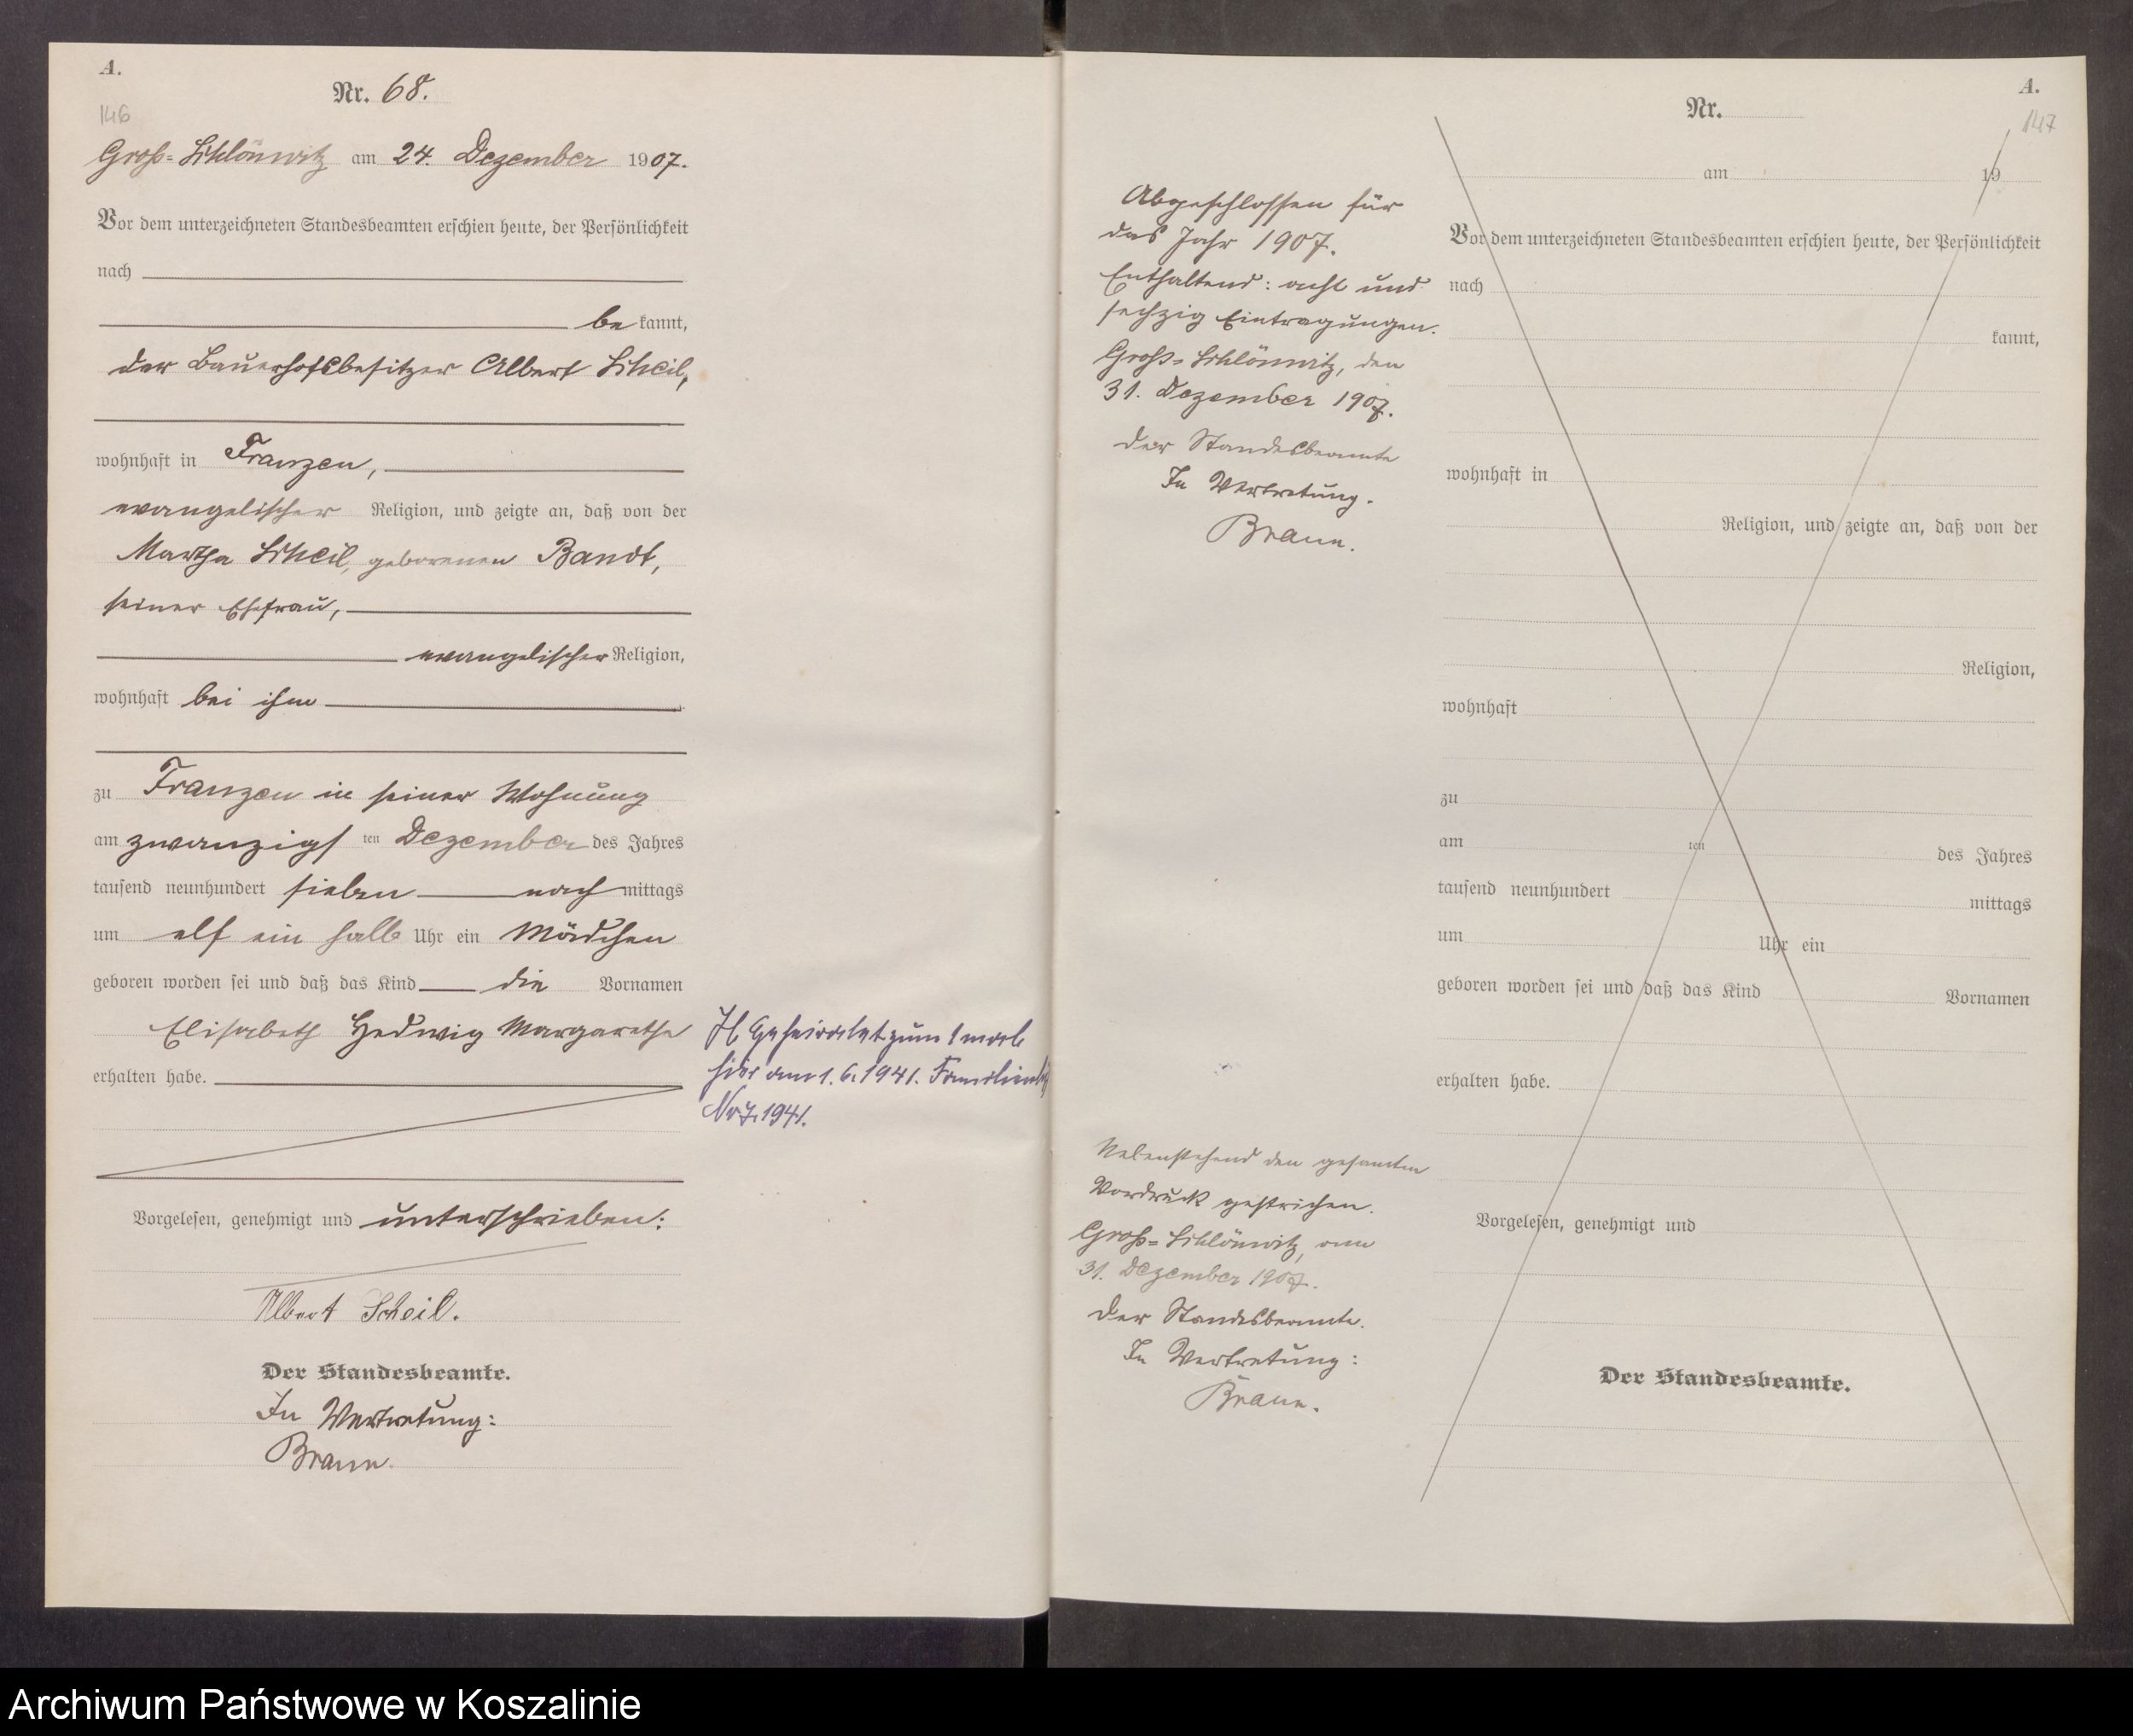 A.
146
Nr. 68.
Groß-Schlönwitz am 24. Dezember 1907.
Vor dem unterzeichneten Standesbeamten erschien heute, der Persönlichkeit
nach
be kannt,
der Bauerhofsbesitzer Albert Scheil,
wohnhaft in Franzen,
evangelischer Religion, und zeigte an, daß von der
Martha Scheil, geborenen Bandt,
seiner Ehefrau,
evangelischer Religion,
wohnhaft bei ihm
zu Franzen in seiner Wohnung
am zwanzigs ten Dezember des Jahres
tausend neunhundert sieben nach mittags
um elf ein halb Uhr ein Mädchen
geboren worden sei und daß das Kind die Vornamen
Elisabeth Hedwig Margarethe
erhalten habe.
Vorgelesen, genehmigt und unterschrieben:
Albert Scheil.
Der Standesbeamte.
In Vertretung:
Braun.
Geheiratet zum 1 mal
hier am 1.6.1941.
Nr 7.1941.
Abgeschlossen für
das Jahr 1907.
Enthaltend: acht und
sechzig Eintragungen.
Groß-Schlönwitz, den
31. Dezember 1907.
Der Standesbeamte
In Vertretung.
Braun.
Nebenstehend den gesamten
Vordruck gestrichen.
Groß-Schlönwitz, am
31. Dezember 1907.
Der Standesbeamte.
In Vertretung:
Braun.
A.
147
Nr.
am 19
Vor dem unterzeichneten Standesbeamten erschien heute, der Persönlichkeit
nach
kannt,
wohnhaft in
Religion, und zeigte an, daß von der
Religion,
wohnhaft
zu
am ten des Jahres
tausend neunhundert mittags
um Uhr ein
geboren worden sei und daß das Kind Vornamen
erhalten habe.
Vorgelesen, genehmigt und
Der Standesbeamte.
Archiwum Państwowe w Koszalinie